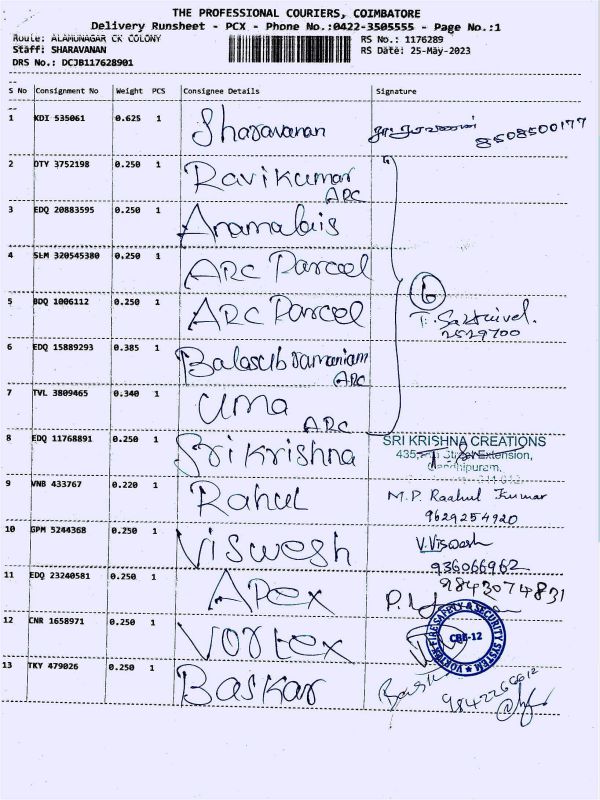 THE PROFESSIONAL COURIERS, COIMBATORE
Delivery Runsheet - PCX - Phone No.:0422-3505555 - Page No.:1
Route: ALAMUNAGAR CK COLONY
RS No.: 1176289
Staff: SHARAVANAN
RS Date: 25-May-2023
DRS No.: DCJB117628901
S No Consignment No Weight PCS Consignee Details Signature
1 KDI 535061 0.625 1 Sharavanan 8508500177
2 DTY 3752198 0.250 1 Ravikumar
ARC
3 EDQ 20883595 0.250 1 Anamalais
4 SLM 320545380 0.250 1 ARC Parcel
6
5 BDQ 1006112 0.250 1 ARC Parcel T. Sakthivel.
2529700
6 EDQ 15889293 0.385 1 Balasubramaniam
ARC
7 TVL 3809465 0.340 1 Uma
ARC
8 EDQ 11768891 0.250 1 Sri Krishna SRI KRISHNA CREATIONS
435, Street Extension,
Gandhipuram,
9 VNB 433767 0.220 1 Rahul M.P. Raahul Kumar
9629254920
10 GPM 5244368 0.250 1 Viswesh V.Viswesh
936066962
11 EDQ 23240581 0.250 1 Apex 9843074831
12 CNR 1658971 0.250 1 Vortex
VORTEX FIRE SAFETY & SECURITY SYSTEM
CBE-12
13 TKY 479026 0.250 1 Baskar